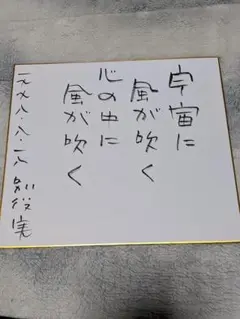 宇宙に
風が吹く
心の中に
風が吹く
一九九八・八・一八 別役実